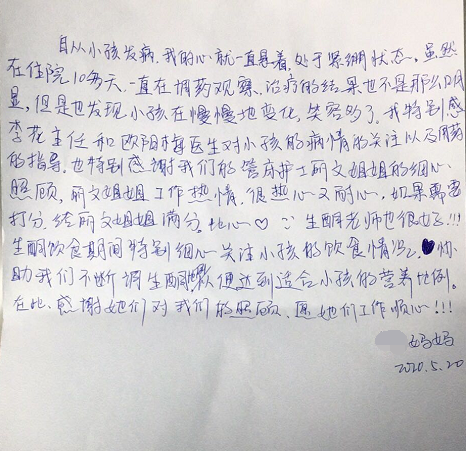 自从小孩发病,我的心就一直悬着,处于紧绷状态,虽然
在住院10多天,一直在调药观察,治疗的结果也不是那么明
显,但是也发现小孩在慢慢地变化,笑容多了,我特别感
李花主任和欧阳梅医生对小孩的病情的关注以及用药
的指导,也特别感谢我们的管床护士丽文姐姐的细心
照顾,丽文姐姐工作热情,很热心又耐心,如果需要
打分,给丽文姐姐满分。比心♡ 生酮老师也很好!!!
生酮饮食期间特别细心关注小孩的饮食情况,
助我们不断调生酮,以便达到适合小孩的营养比例。
在此,感谢她们对我们的照顾,愿她们工作顺心!!!
妈妈
2020.5.20